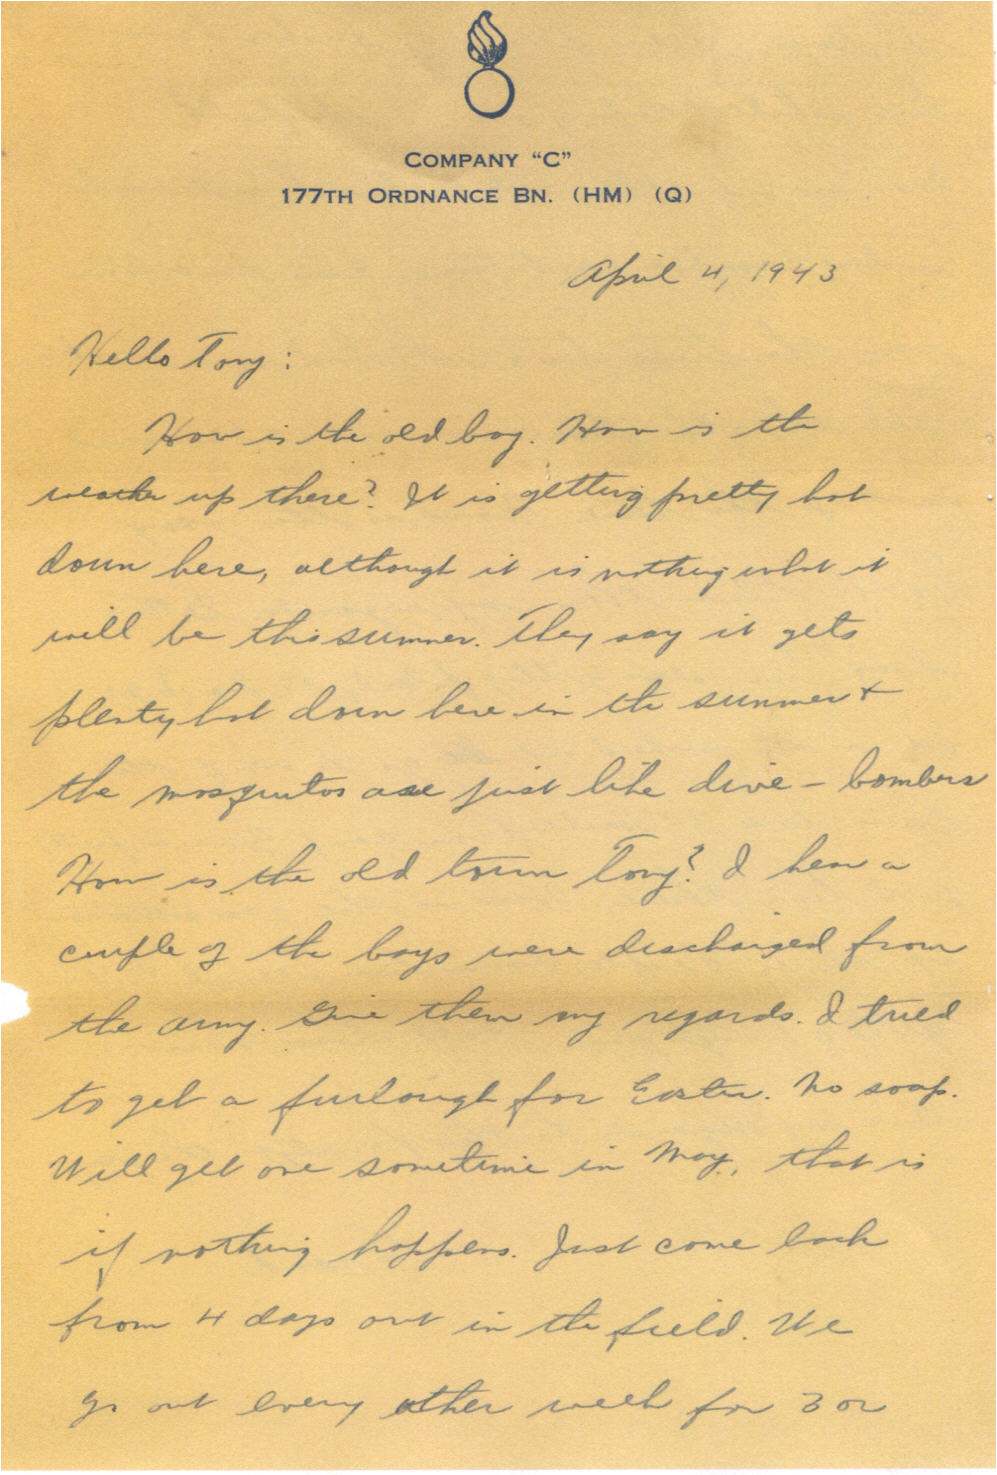 COMPANY "C"
177TH ORDNANCE BN. (HM) (Q)
April 4, 1943
Hello Tony:
How is the old boy. How is the
weather up there? It is getting pretty hot
down here, although it is nothing what it
will be this summer. They say it gets
plenty hot down here in the summer +
the mosquitos are just like dive - bombers
How is the old town Tony? I hear a
couple of the boys were discharged from
the army. Give them my regards. I tried
to get a furlough for Easter. No soap.
Will get one sometime in May, that is
if nothing happens. Just come back
from 4 days out in the field. We
go out every other week for 3 or